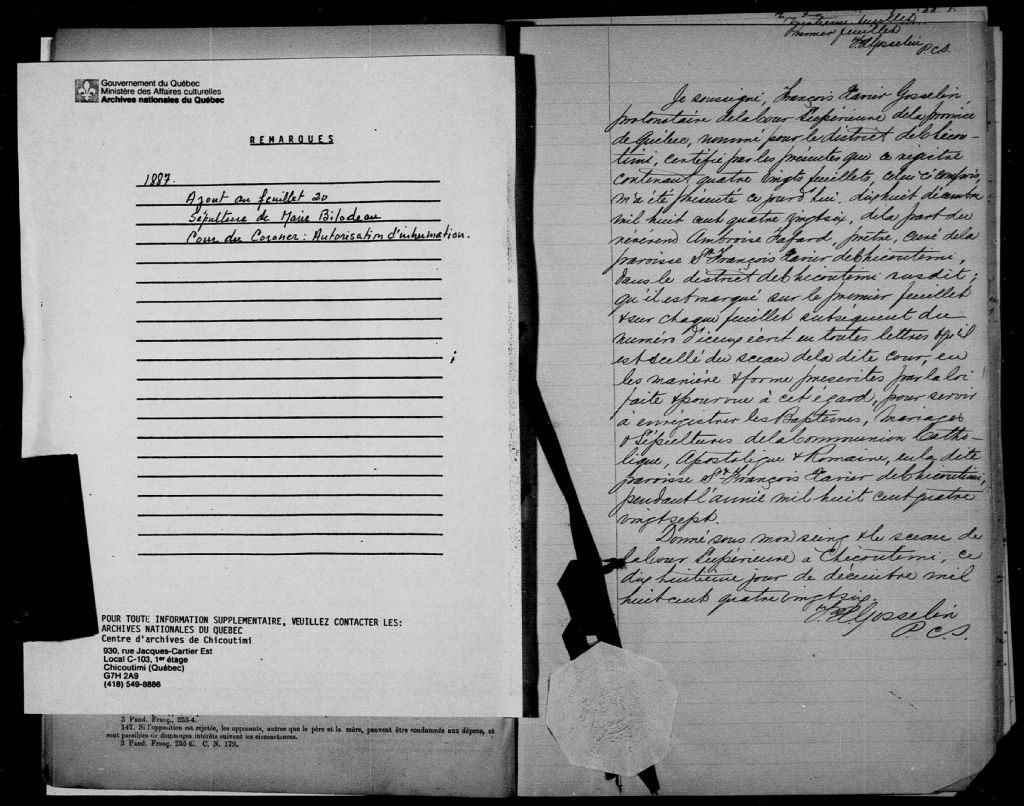 Gouvernement du Québec
Ministère des Affaires culturelles
Archives nationales du Québec
REMARQUES
1887.
Ajout au feuillet 20
Sépulture de Marie Bilodeau
Cour du Coroner : Autorisation d'inhumation.
POUR TOUTE INFORMATION SUPPLEMENTAIRE, VEUILLEZ CONTACTER LES:
ARCHIVES NATIONALES DU QUEBEC
Centre d'archives de Chicoutimi
930, rue Jacques-Cartier Est
Local C-103, 1er étage
Chicoutimi (Québec)
G7H 2A9
(418) 549-8886
3 Pand. Franç. 253-4.
147. Si l'opposition est rejetée, les opposants, autres que le père et la mère, peuvent être condamnés aux dépens, et
sont passibles de dommages intérêts suivant les circonstances.
3 Pand. Franç. 255 6. C. N. 179.
feuillet
Premier feuillet
F. X. Gosselin
P.C.S.
Je soussigné, François Xavier Gosselin,
protonotaire de la Cour Supérieure de la province
de Québec, nommé pour le district de Chicou-
timi, certifie par les présentes que ce registre
contenant quatre vingts feuillets, celui ci compris,
m'a été présenté ce jourd'hui, dix huit décembre
mil huit cent quatre vingt six, de la part du
révérend Ambroise Fafard, prêtre, curé de la
paroisse St. François Xavier de Chicoutimi,
dans le district de Chicoutimi susdit;
qu'il est marqué sur le premier feuillet
& sur chaque feuillet subséquent du
numéro d'iceux écrit en toutes lettres & qu'il
est scellé du sceau de la dite cour, en
les manière & forme prescrites par la loi
faite & pourvue à cet égard, pour servir
à enregistrer les Baptêmes, Mariages
& Sépultures de la Communion Catho-
lique, Apostolique & Romaine, en la dite
paroisse St. François Xavier de Chicoutimi,
pendant l'année mil huit cent quatre
vingt sept.
Donné sous mon seing & le sceau de
la Cour Supérieure à Chicoutimi, ce
dix huitième jour de décembre mil
huit cent quatre vingt six.
F. X. Gosselin
P.C.S.